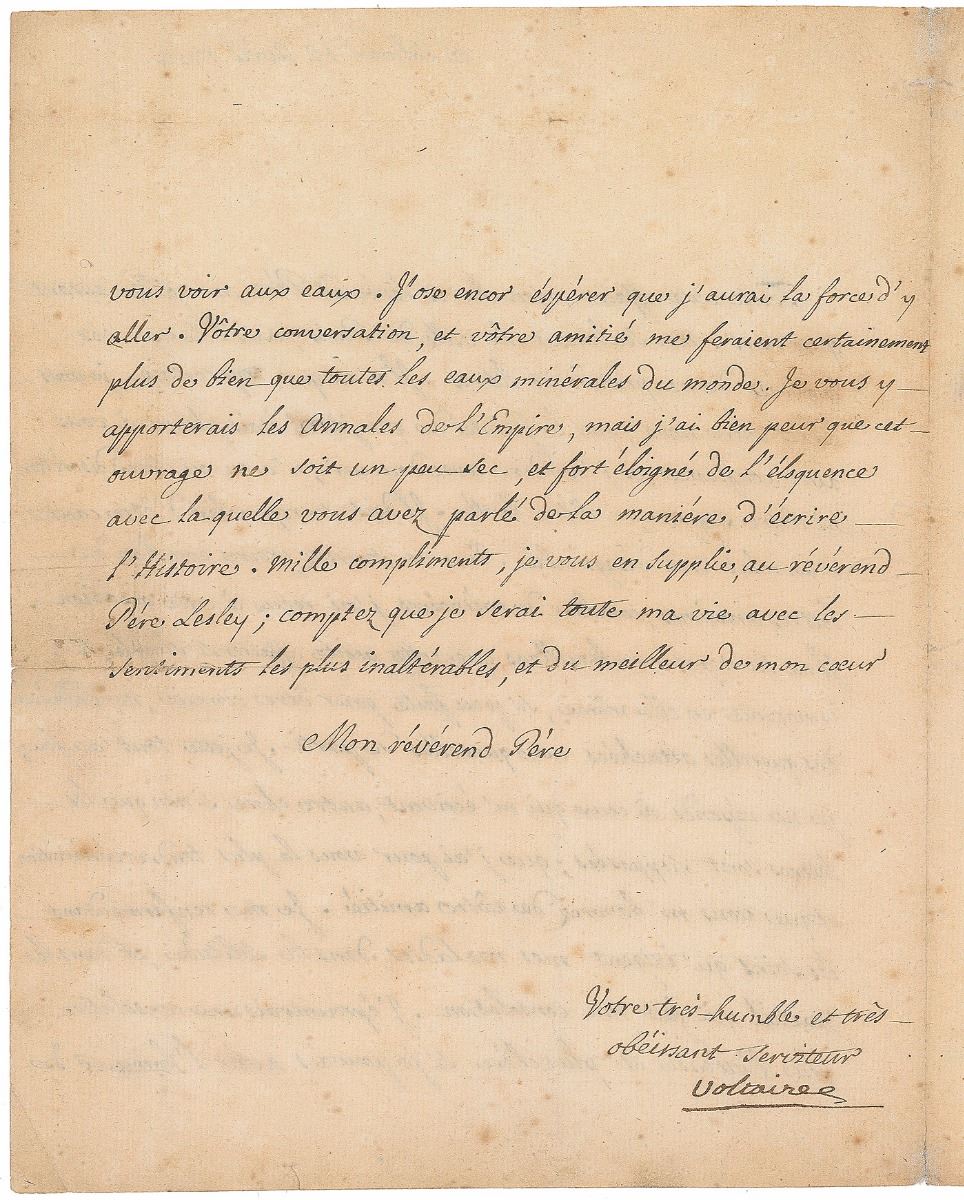 vous voir aux eaux. J'ose encor éspérer que j'aurai la force d'y
aller. Vôtre conversation, et vôtre amitié me feraient certainement
plus de bien que toutes les eaux minérales du monde. Je vous y
apporterais les Annales de l'Empire, mais j'ai bien peur que cet
ouvrage ne soit un peu sec, et fort éloigné de l'éloquence
avec la quelle vous avez parlé de la maniére d'écrire
l'Histoire. Mille compliments, je vous en supplie, au révérend
Pére Lesley; comptez que je serai toute ma vie avec les
sentiments les plus inaltérables, et du meilleur de mon cœur
Mon révérend Pére
Votre très humble et très
obéissant serviteur
Voltaire